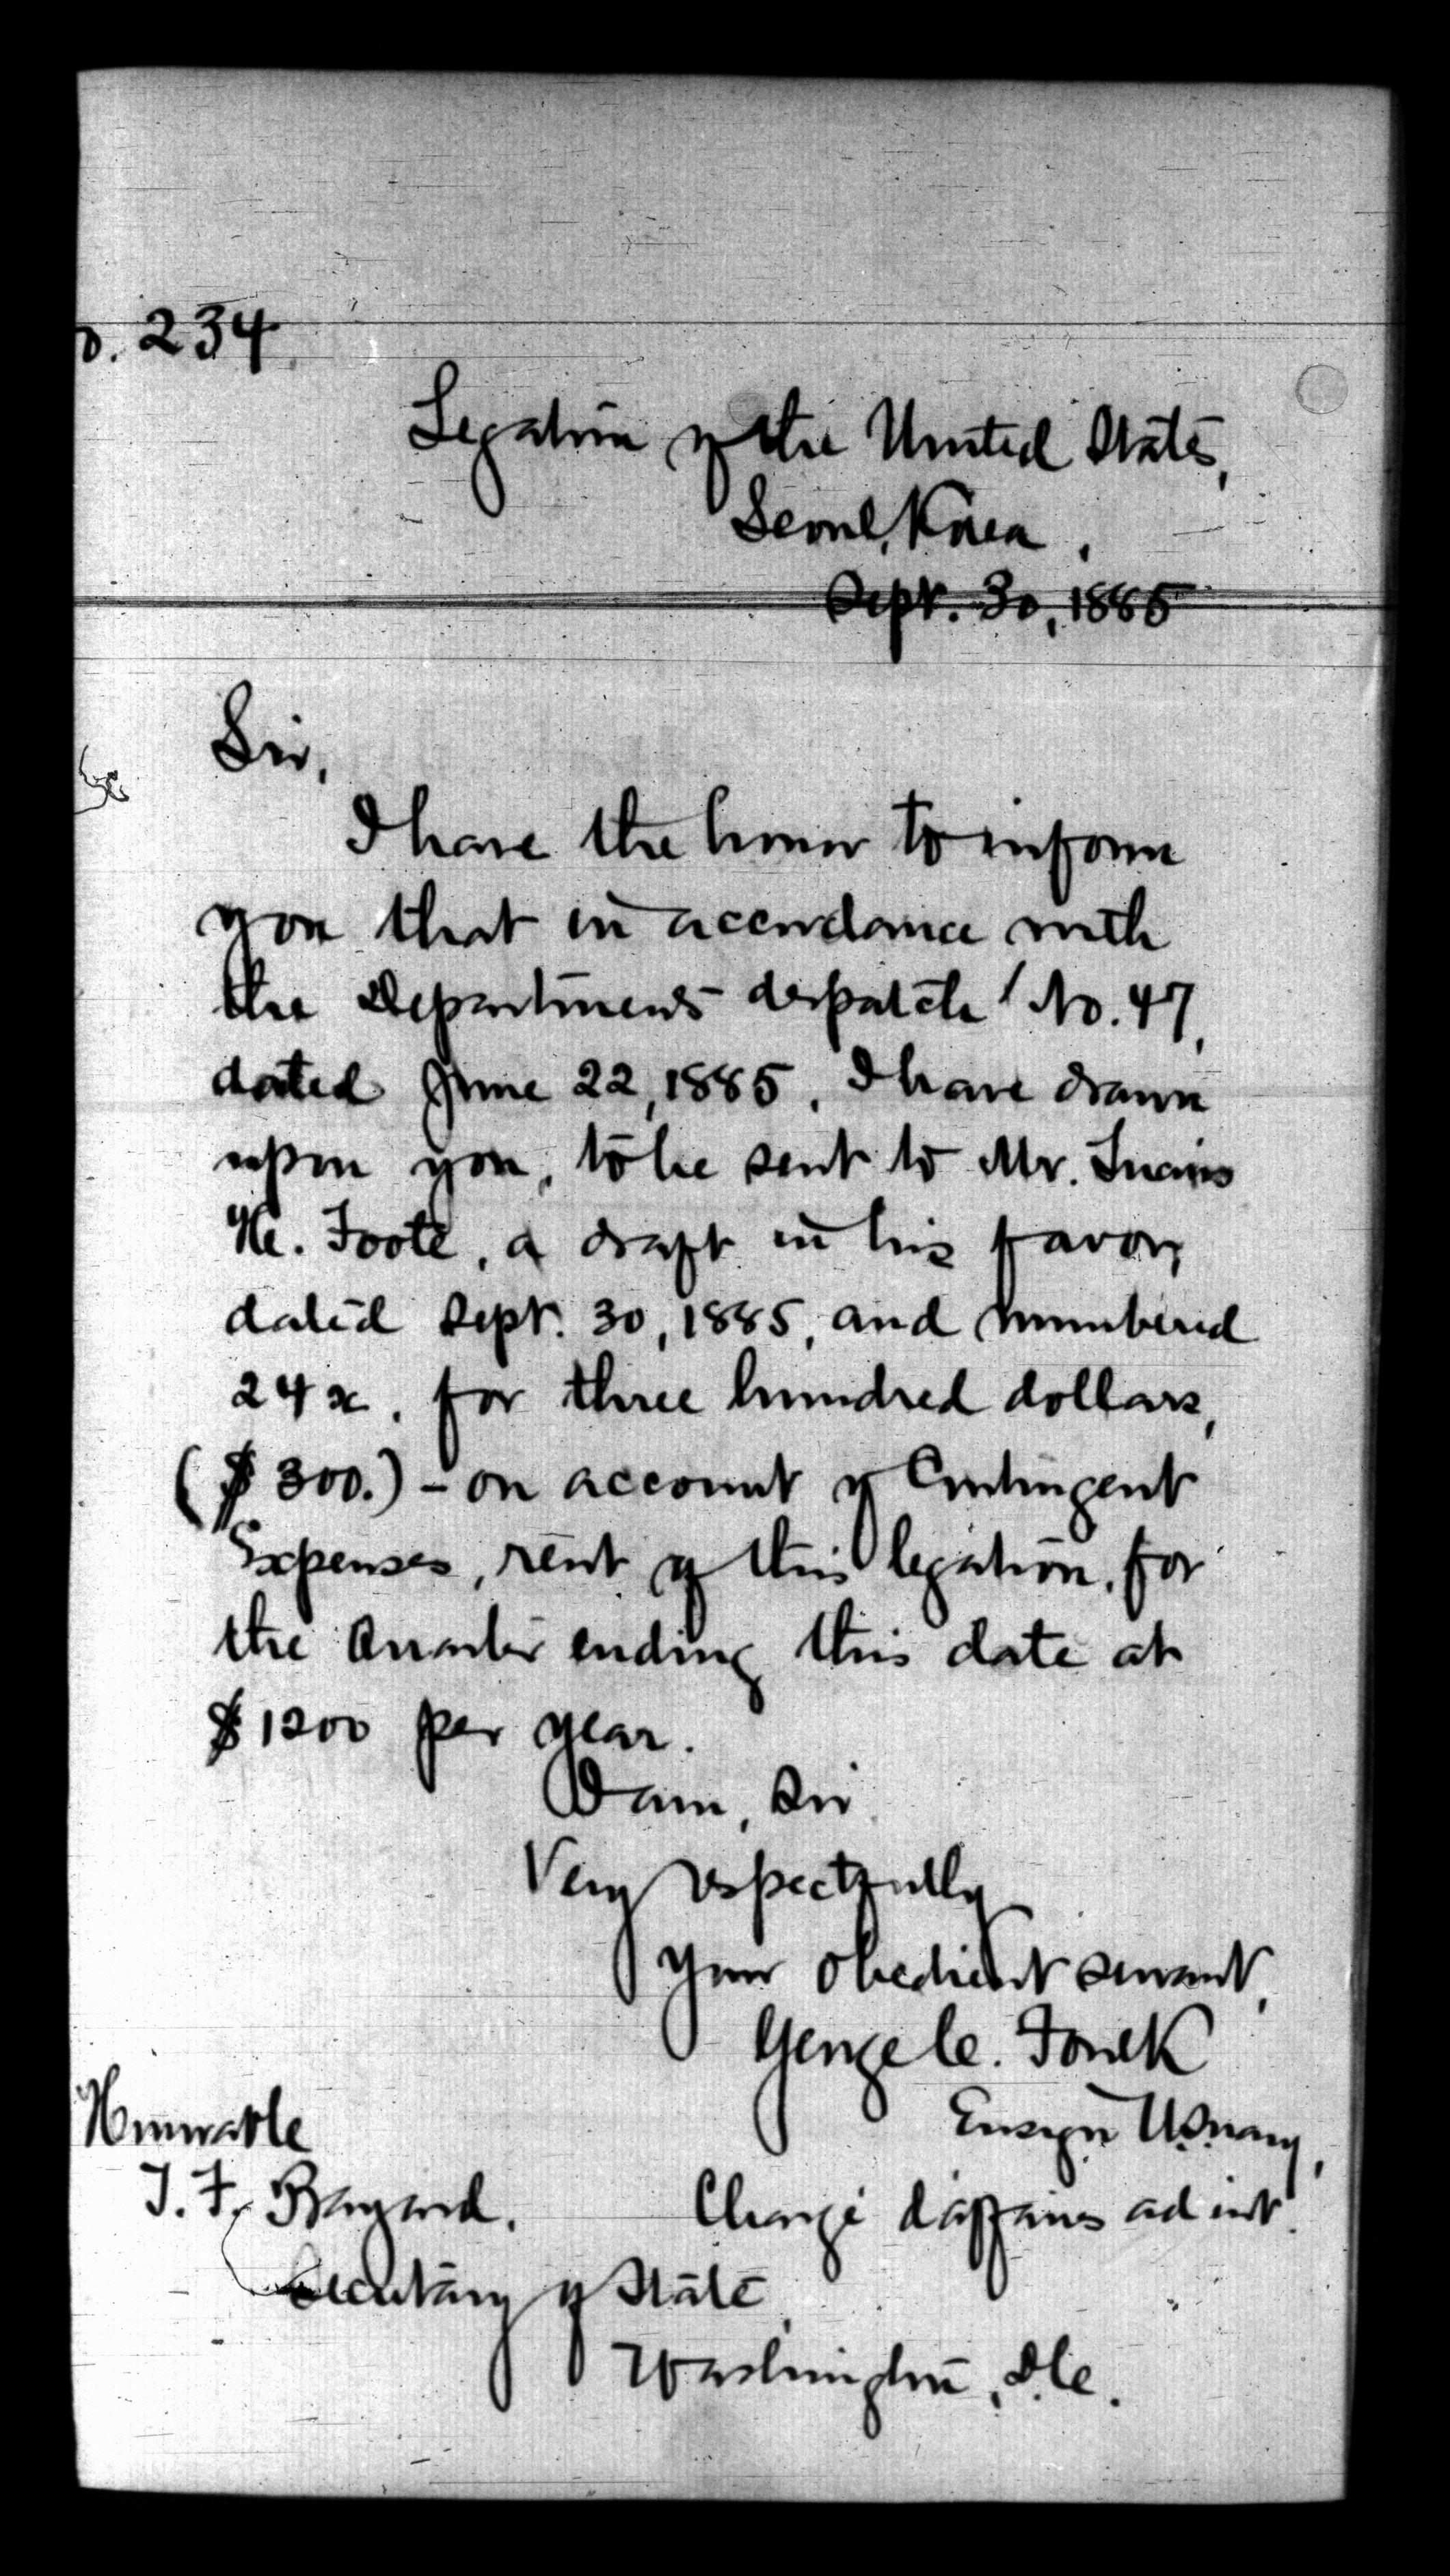 o. 234
Legation of the United States,
Seoul, Korea,
Sept. 30, 1885
Sir,
I have the honor to inform
you that in accordance with
the Department's despatch No. 47,
dated June 22, 1885, I have drawn
upon you, to be sent to Mr. Lucius
H. Foote, a draft in his favor,
dated Sept. 30, 1885, and numbered
24x, for three hundred dollars,
($300.) - on account of Contingent
Expenses, rent of this legation, for
the Quarter ending this date at
$1200 per year.
I am, Sir
Very respectfully
Your obedient servant,
George C. Foulk
Ensign U.S. Navy,
Honorable
T. F. Bayard,
Chargé d'affaires ad int.
Secretary of State,
Washington, D.C.